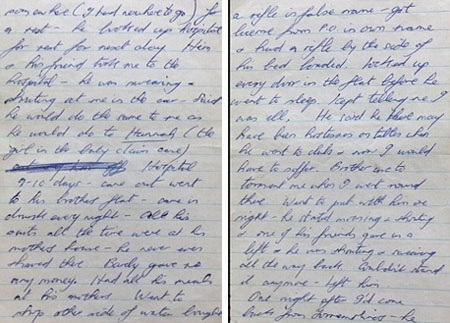 (I had nowhere to go) for
a rest - he booked up hospital
for rest for next day. Him
& his friend took me to the
hospital - he was swearing &
shouting at me in the car - said
he would do the same to me as
he would do to Hannah (the
girl in the baby claim case)
Hospital
9-10 days - came out went
to his brothers flat - came in
drunk every night - All his
suits all the time were at his
mothers house - he never even
shaved there. Barely gave me
any money. Had all his meals
at his mothers. Went to
shop other side of water bought
a rifle in false name - got
licence from P.O. in own name
& had a rifle by the side of
his bed loaded. Locked up
every door in the flat before he
went to sleep. Kept telling me I
was ill, He said he may
have been hostesses or tables when
he went to clubs & now I would
have to suffer. Brother use to
torment me when I went round
there. Went to pub with him one
night - he started moaning & shouting
& one of his friends gave us a
lift & he was shouting & swearing
all the way back. Couldn't stand
it anymore - left him.
One night after I'd come
back from - he